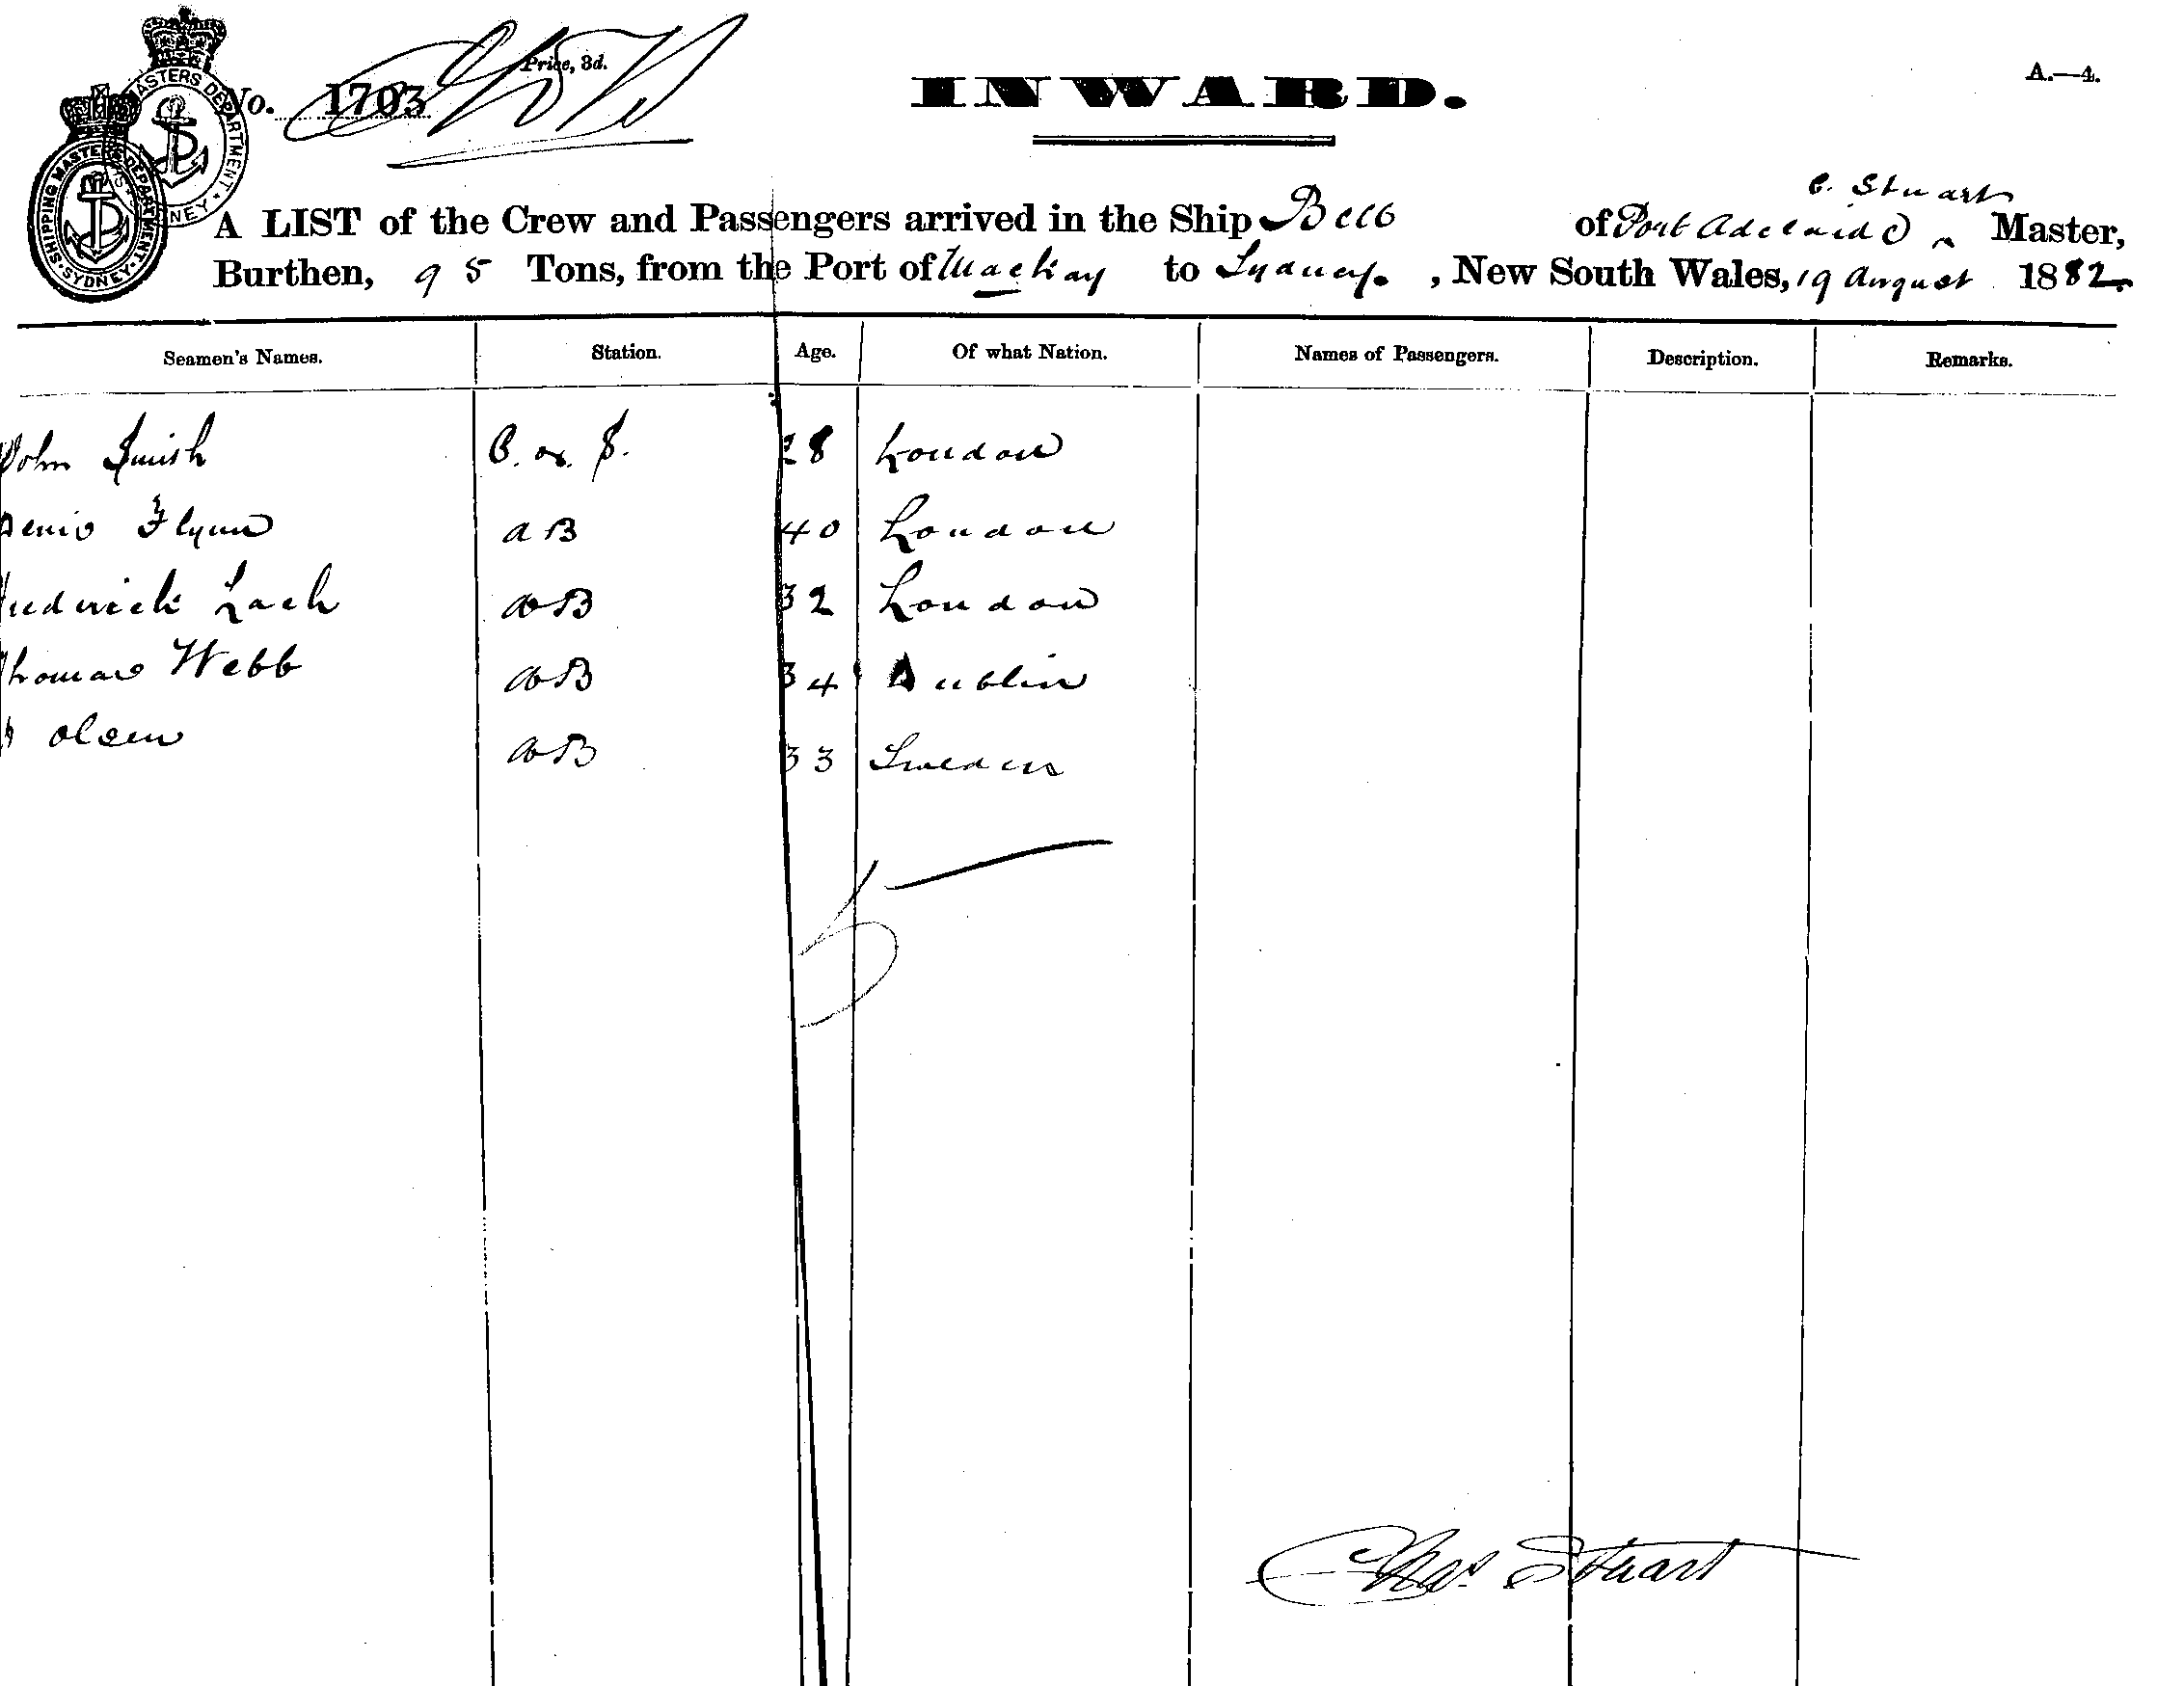 Price, 3d.
No. 1703
INWARD.
A.—4.
SHIPPING MASTERS DEPARTMENT
SYDNEY
C. Stuart
A LIST of the Crew and Passengers arrived in the Ship of Port Adelaide Master,
Burthen, 95 Tons, from the Port of Mackay to Sydney. , New South Wales, 19 August 1882.
Seamen's Names. Station. Age. Of what Nation. Names of Passengers. Description. Remarks.
John 28 London
Denis Flynn AB 40 London
Frederick AB 32 London
Thomas Webb AB 34 Dublin
Olsen AB 33 Sweden
5
Chas. Stuart